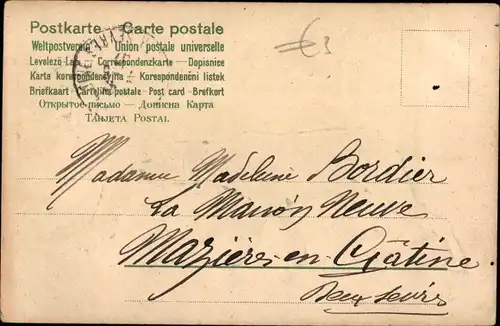 Postkarte — Carte postale
Weltpostverein — Union postale universelle
Levelező-Lap — Correspondenzkarte — Dopisnice
Karta korespondencyjna — Korespondenční listek
Briefkaart — Cartolina postale — Post card — Brefkort
Открытое письмо — Дописна Карта
Tarjeta Postal
€3
Madame Madeleine Bordier
La Maison Neuve
Mazières-en-Gâtine
Deux Sèvres